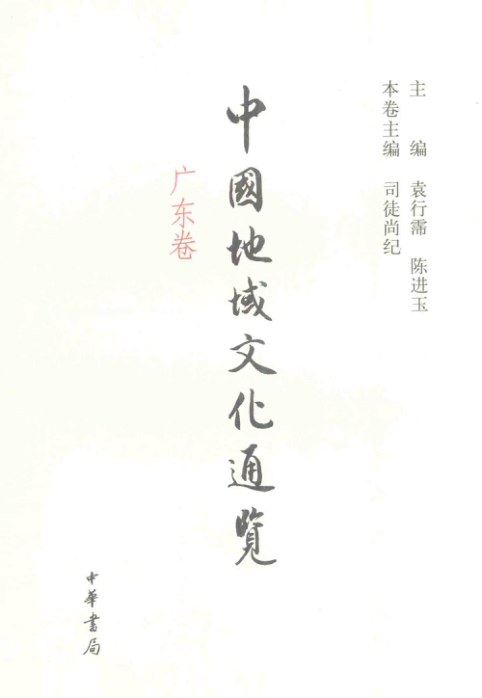 主编 袁行霈 陈进玉
本卷主编 司徒尚纪
中國地域文化通覽
广东卷
中華書局